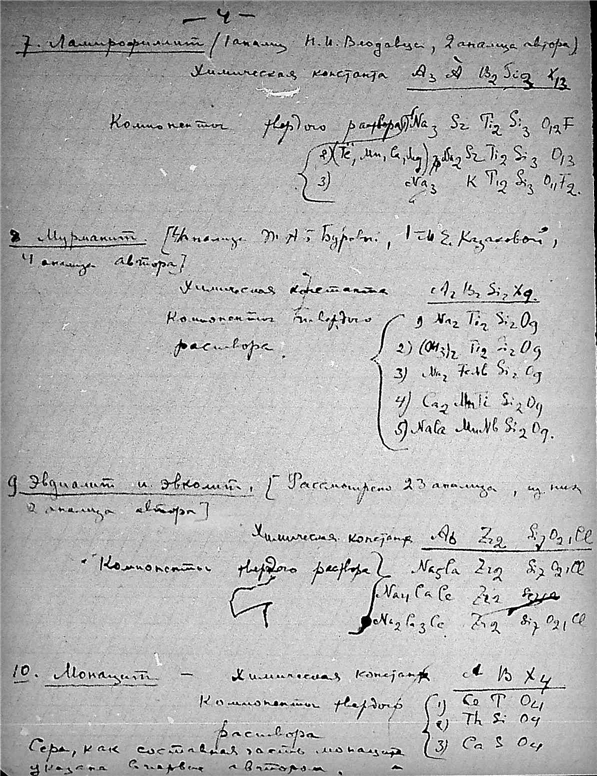 — 4 —
7. Лампрофиллит (1 анализ Н.И. Влодавца, 2 анализа автора)
Химическая константа A3 A B2 Si3 X13
Компоненты твердого раствора 1) Na3 Sr Ti2 Si3 O12F
2) (Fe, Mn, Ca, Mg) Na2 Sr Ti2 Si3 O13
3) Na3 K Ti2 Si3 O11F2.
8. Мурманит [4 анализа Буровой, 1 М.Е. Казаковой,
4 анализа автора]
Химическая константа A2 B2 Si2 X9.
Компоненты твердого 1) Na2 Ti2 Si2O9
раствора. 2) (OH3)2 Ti2 Si2O9
3) Na2 FeNb Si2O9
4) Ca2 MnTi Si2O9
5) NaCa MnNb Si2O9.
9 Эвдиалит и эвколит. [Рассмотрено 23 анализа, из них
2 анализа автора]
Химическая константа A6 Zr2 Si7O21Cl
Компоненты твердого раствора Na5Ca Zr2 Si7O21Cl
Na4CaCe Zr2
Na2Ca3Ce Zr2 Si7O21Cl
10. Монацит — Химическая константа A B X4
Компоненты твердого 1) Ce P O4
раствора 2) Th Si O4
3) Ca S O4
Сера, как составная часть монацита
указана впервые автором.